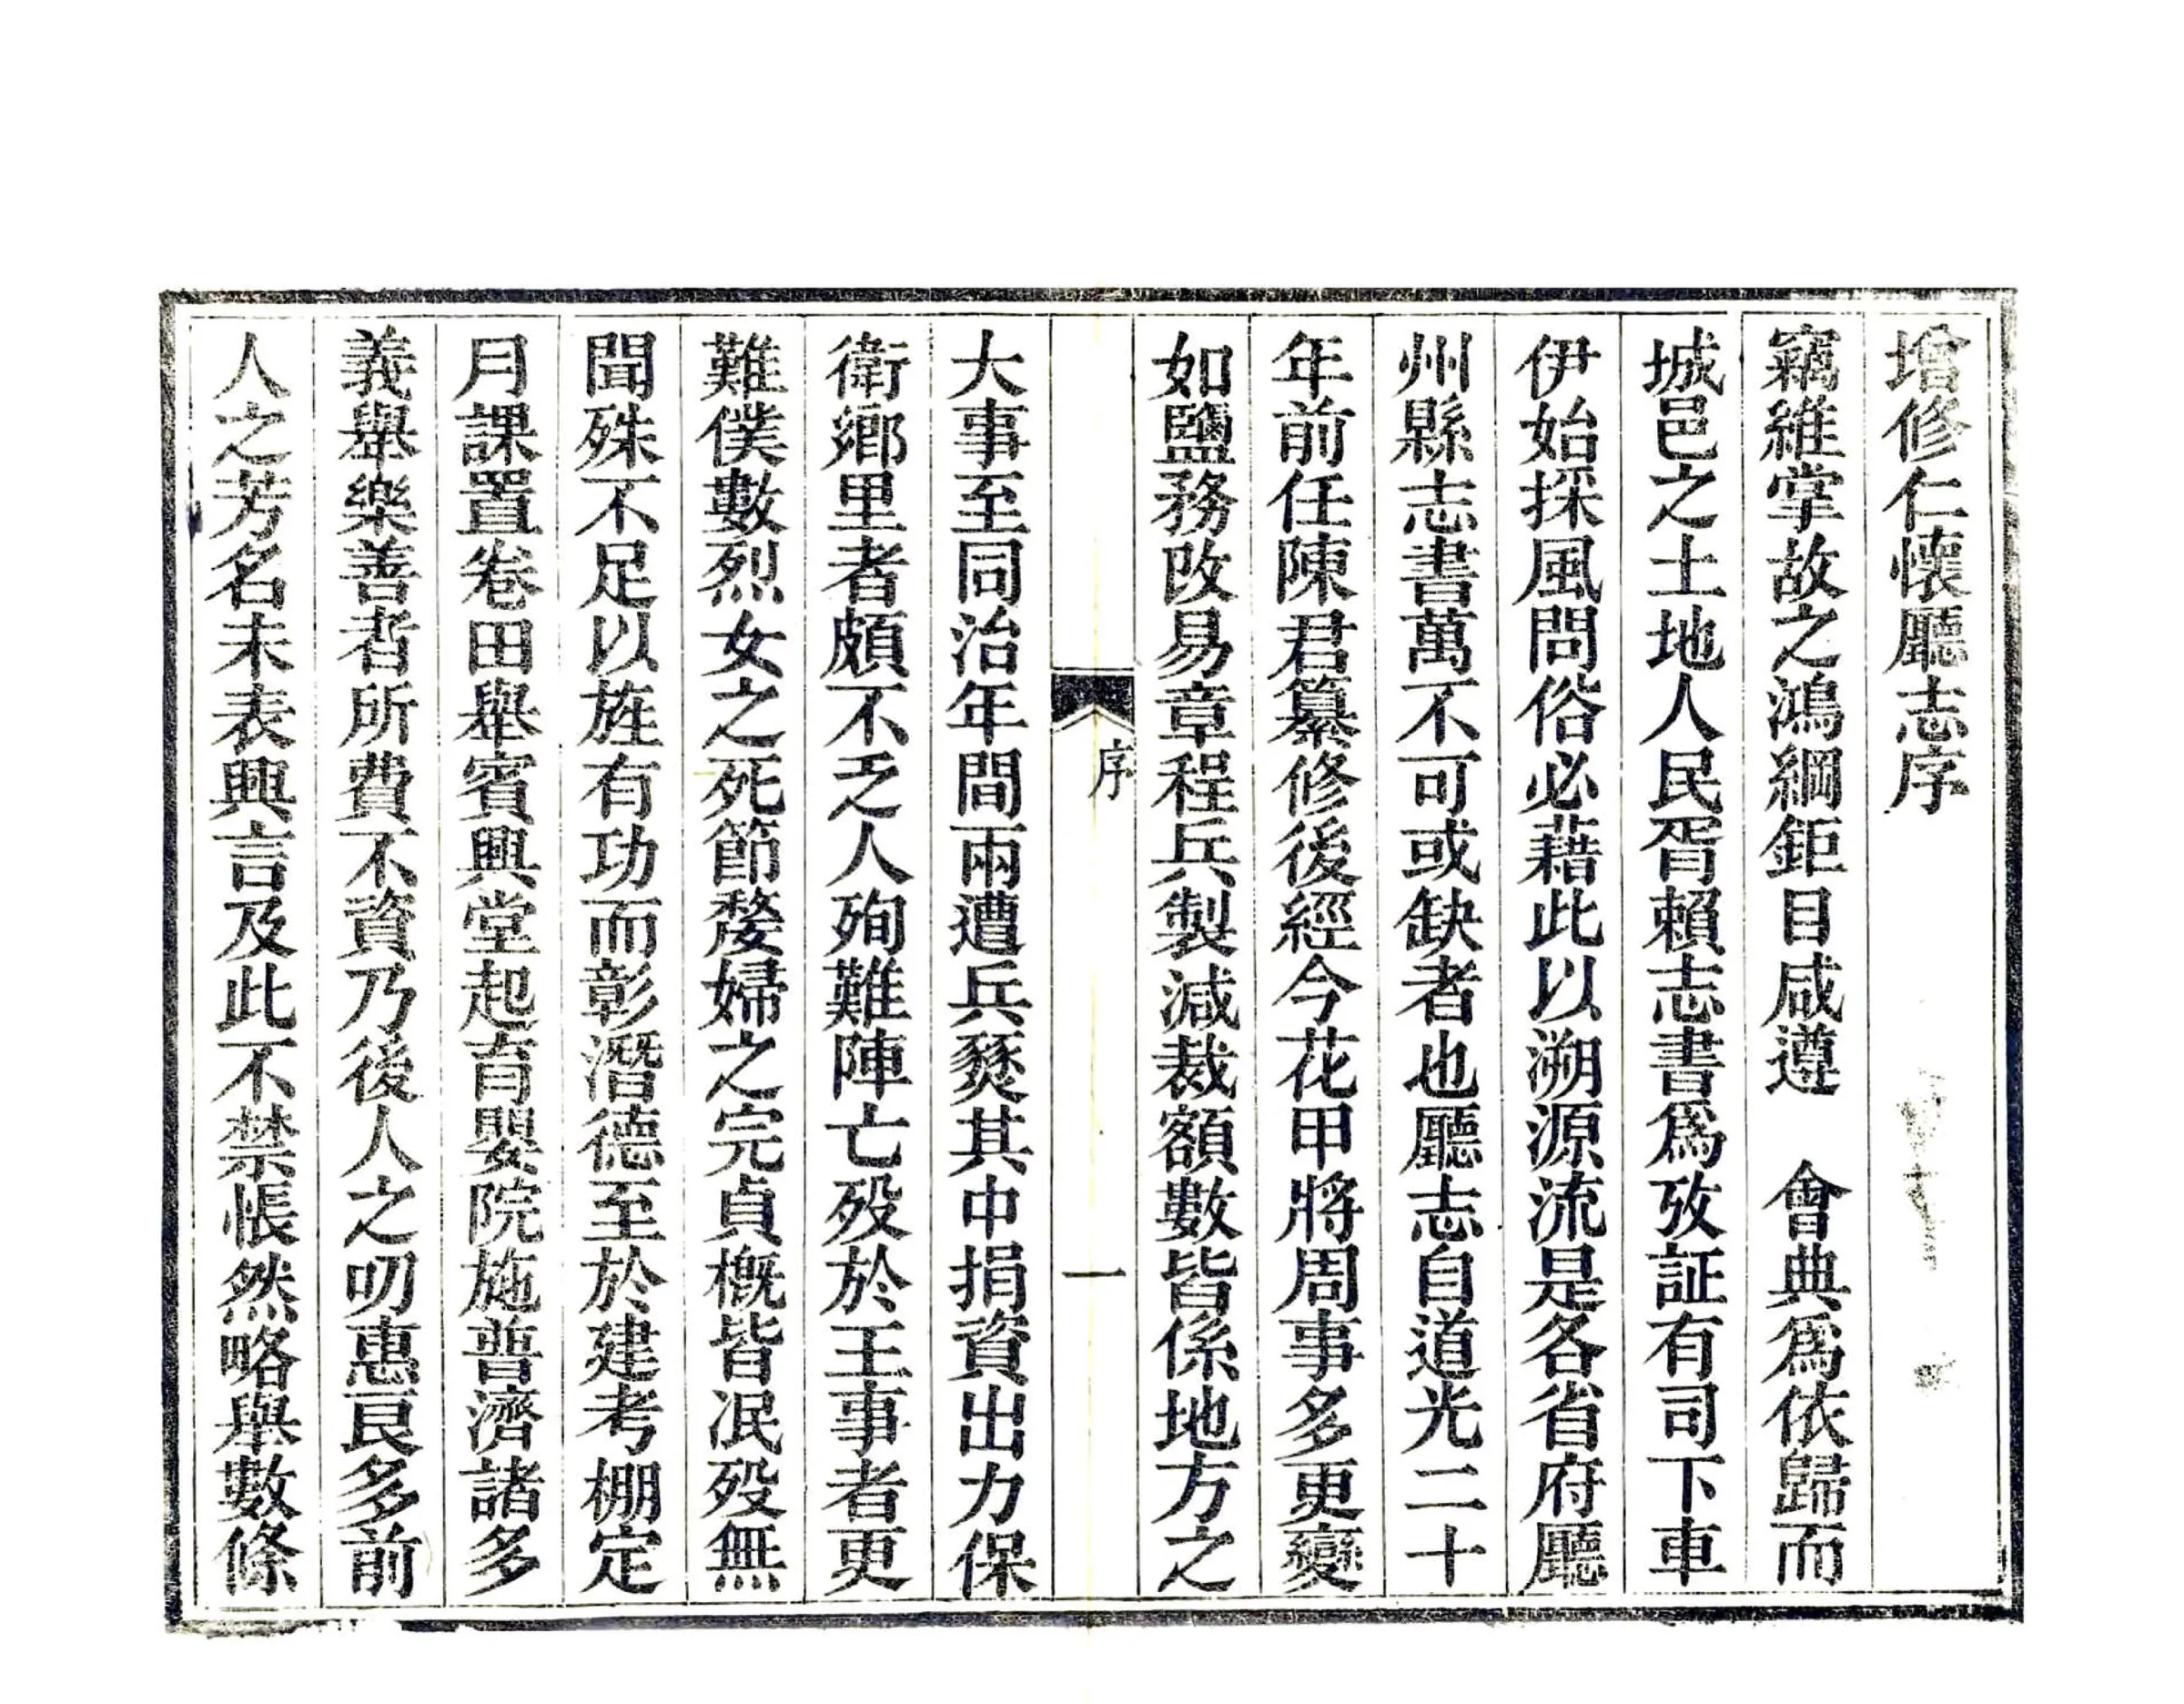 增修仁懷廳志序
竊維掌故之鴻綱鉅目咸遵　會典爲依歸而
城邑之土地人民胥賴志書爲攷証有司下車
伊始採風問俗必藉此以溯源流是各省府廳
州縣志書萬不可或缺者也廳志自道光二十
年前任陳君纂修後經今花甲將周事多更變
如鹽務改易章程兵製減裁額數皆係地方之
序
一
大事至同治年間兩遭兵燹其中捐資出力保
衛鄉里者頗不乏人殉難陣亡歿於王事者更
難僕數烈女之死節嫠婦之完貞槪皆泯歿無
聞殊不足以旌有功而彰潛德至於建考棚定
月課置卷田舉賓興堂起育嬰院施普濟諸多
義舉樂善者所費不資乃後人之叨惠良多前
人之芳名未表興言及此不禁悵然略舉數條